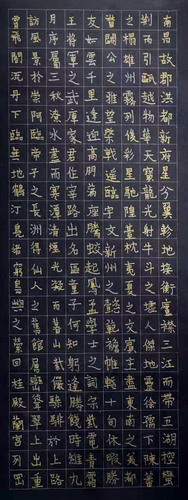 南昌故郡洪都新府星分翼軫地接衡廬襟三江而帶五湖控蠻
荊而引甌越物華天寶龍光射牛斗之墟人傑地靈徐孺下陳蕃
之榻雄州霧列俊彩星馳臺隍枕夷夏之交賓主盡東南之美都
督閻公之雅望棨戟遙臨宇文新州之懿範襜帷暫駐十旬休暇勝
友如雲千里逢迎高朋滿座騰蛟起鳳孟學士之詞宗紫電青霜
王將軍之武庫家君作宰路出名區童子何知躬逢勝餞時維九
月序屬三秋潦水盡而寒潭清煙光凝而暮山紫儼驂騑於上路
訪風景於崇阿臨帝子之長洲得仙人之舊館層巒聳翠上出重
霄飛閣流丹下臨無地鶴汀鳧渚窮島嶼之縈回桂殿蘭宮列岡